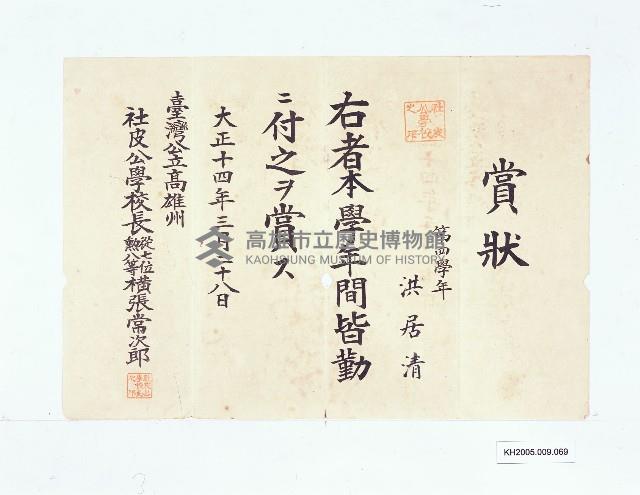 賞狀
第四學年
洪居清
右者本學年間皆勤
ニ付之ヲ賞ス
大正十四年三月二十八日
臺灣公立高雄州
社皮公學校長從七位勲八等橫張常次郎
高雄市立歷史博物館
KAOHSIUNG MUSEUM OF HISTORY
KH2005.009.069